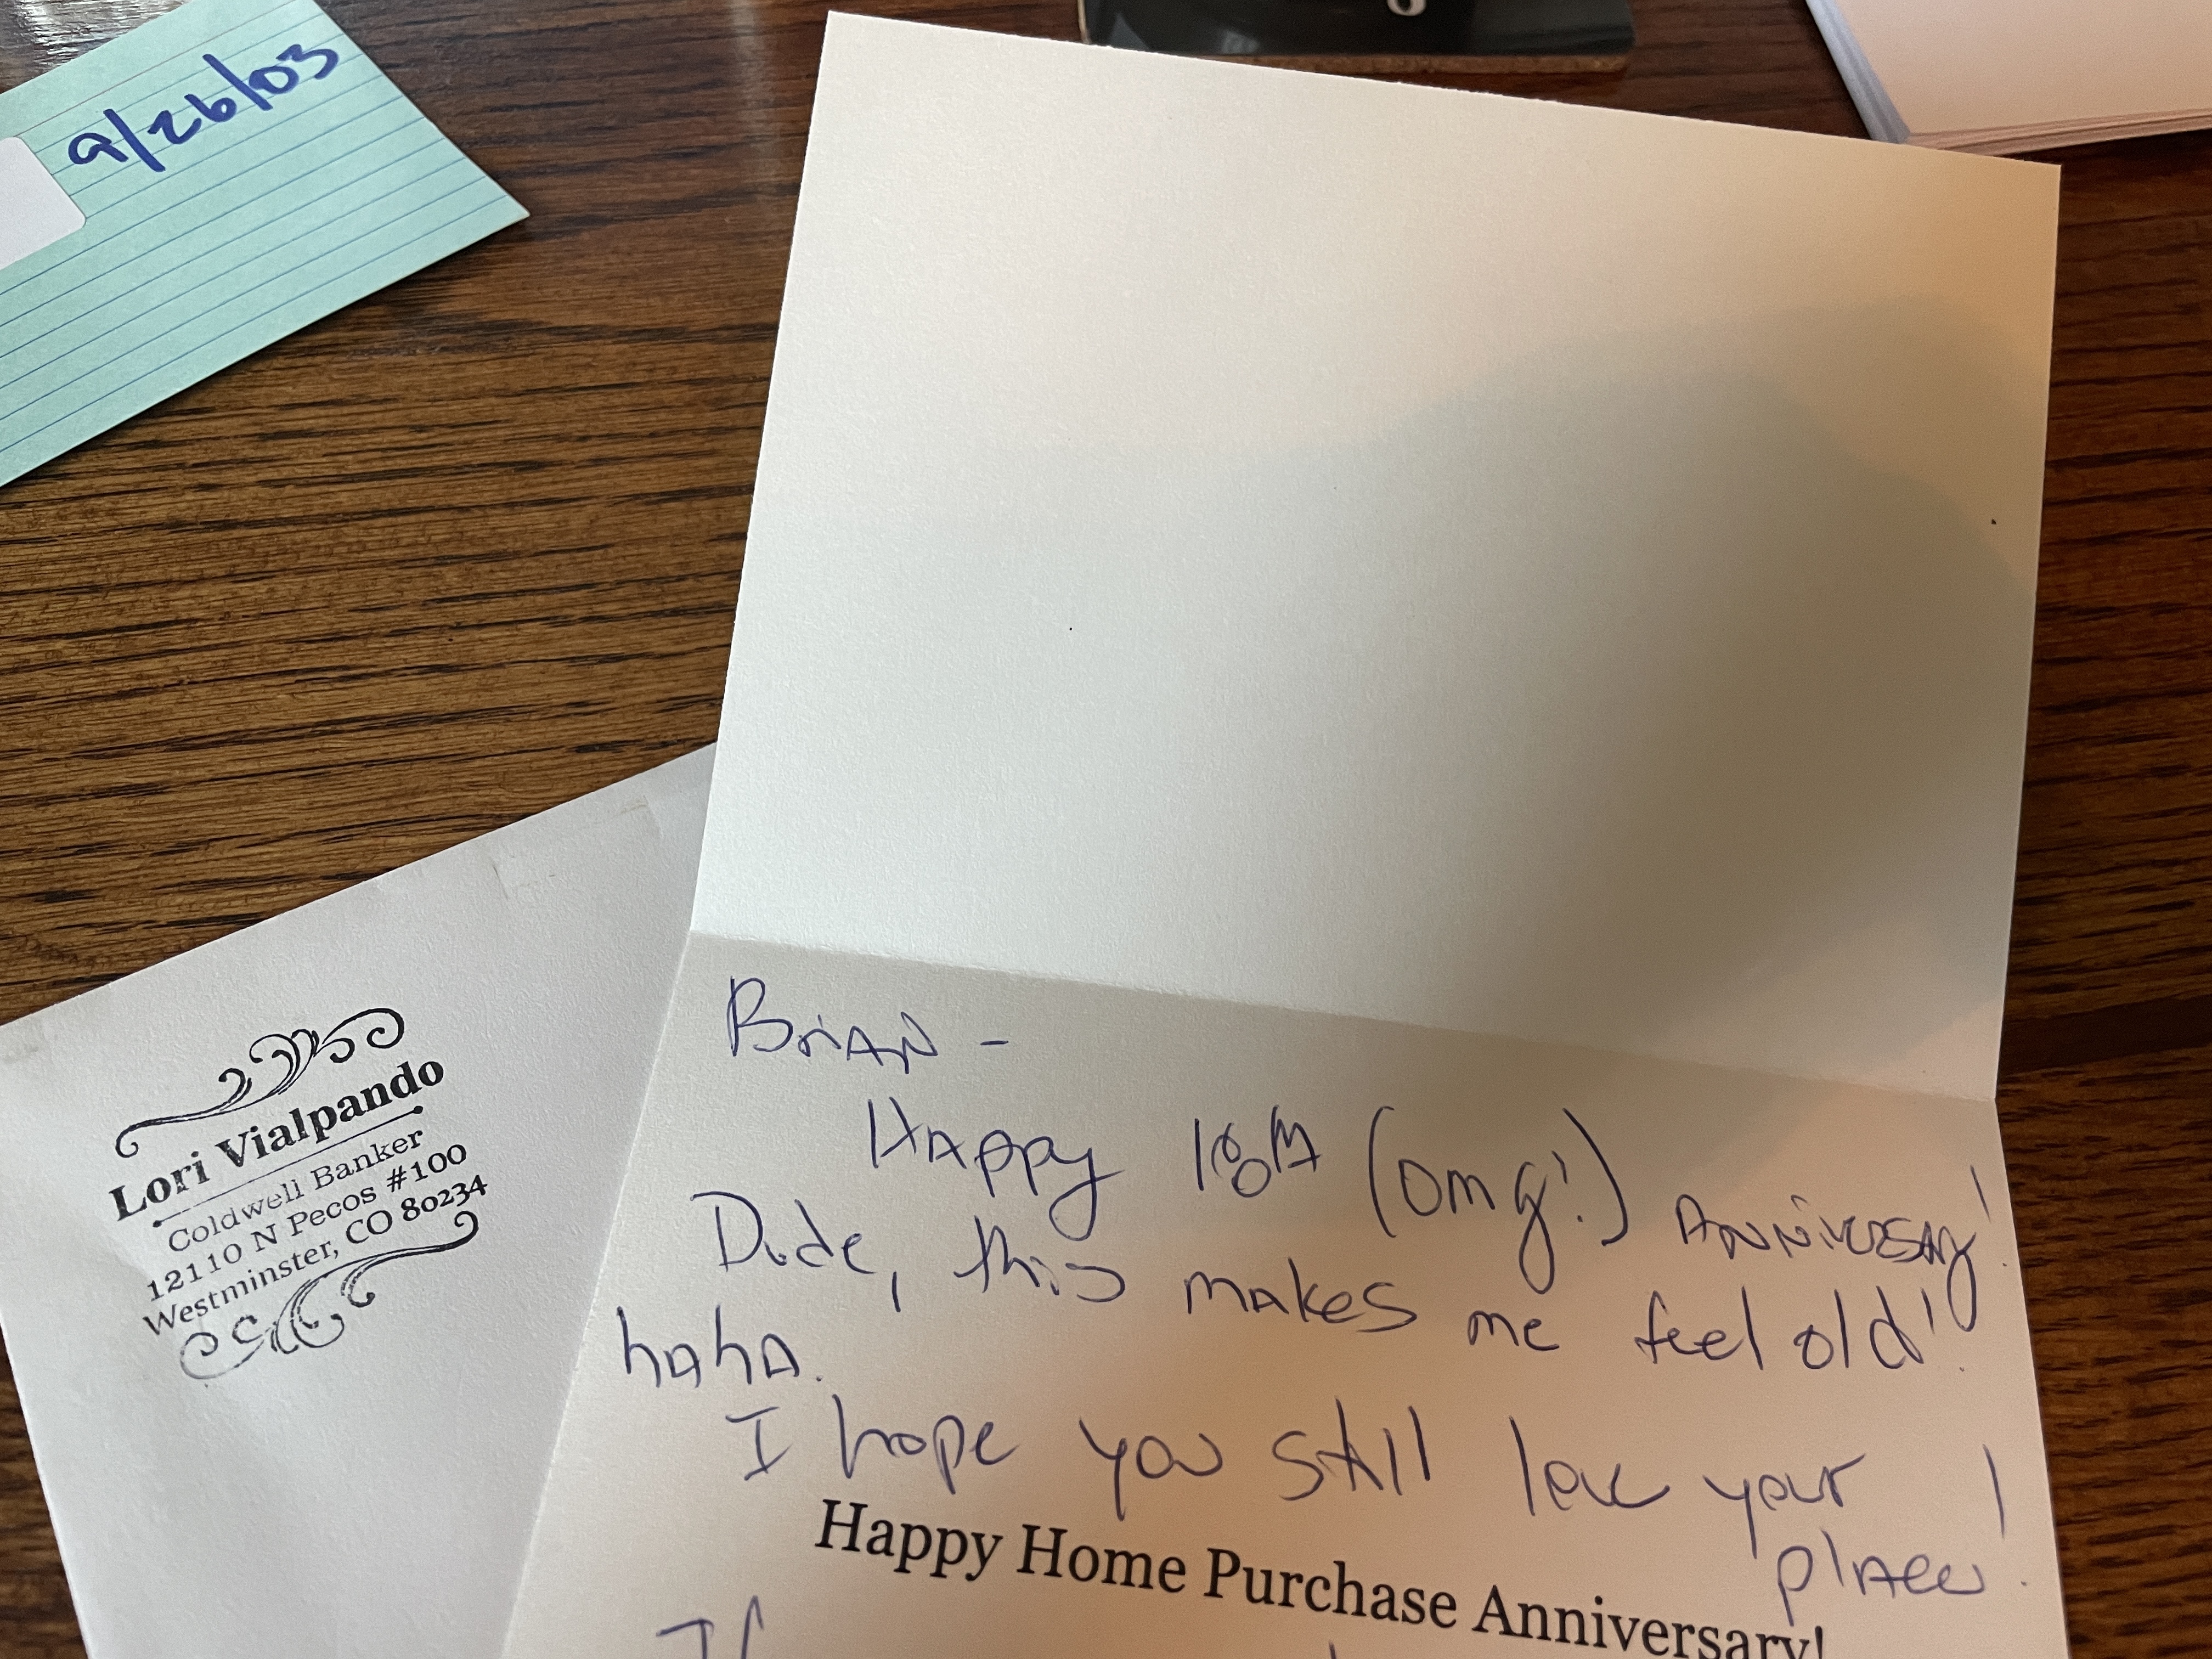 9/26/03
Lori Vialpando
Coldwell Banker
12110 N Pecos #100
Westminster, CO 80234
BriAN -
HAppy 18th (omg!) ANNiversAry!
Dude, this makes me feel old!
hAhA.
I hope you still love your
place!
Happy Home Purchase Anniversary!